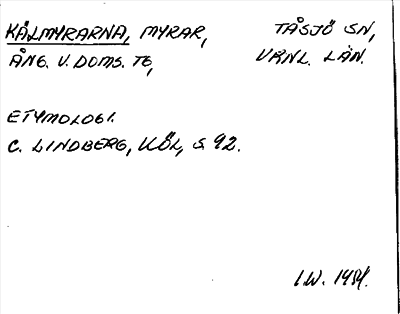 KÅLMYRARNA, MYRAR, TÅSJÖ SN,
ÅNG. V. DOMS. TG, VRNL. LÄN.
ETYMOLOGI.
C. LINDBERG, KÖL, S. 92.
I.W. 1984.